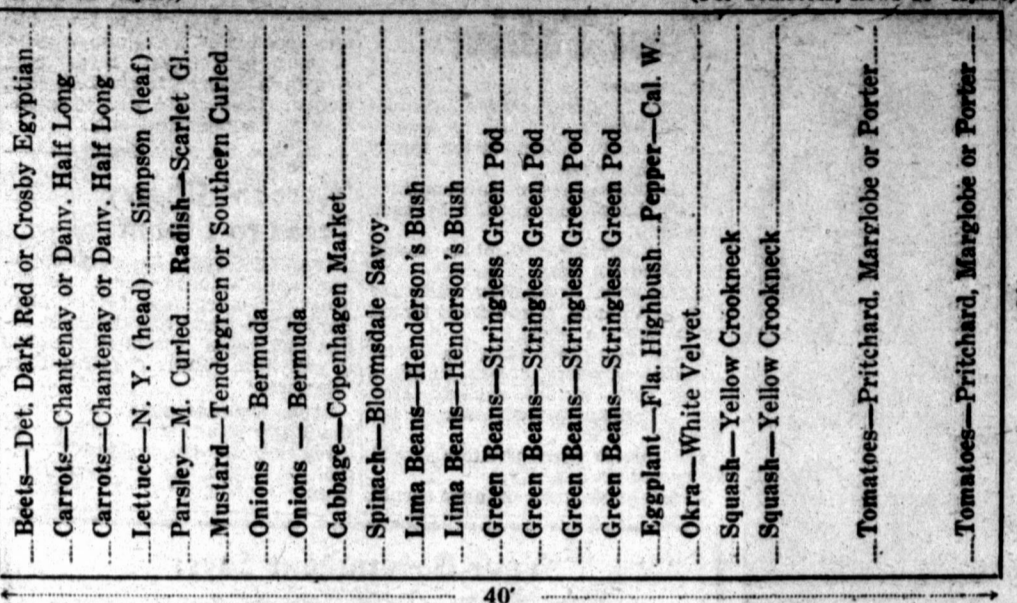 Beets—Det. Dark Red or Crosby Egyptian
Carrots—Chantenay or Danv. Half Long
Carrots—Chantenay or Danv. Half Long
Lettuce—N. Y. (head) Simpson (leaf)
Parsley—M. Curled Radish—Scarlet Gl.
Mustard—Tendergreen or Southern Curled
Onions — Bermuda
Onions — Bermuda
Cabbage—Copenhagen Market
Spinach—Bloomsdale Savoy
Lima Beans—Henderson's Bush
Lima Beans—Henderson's Bush
Green Beans—Stringless Green Pod
Green Beans—Stringless Green Pod
Green Beans—Stringless Green Pod
Green Beans—Stringless Green Pod
Eggplant—Fla. Highbush Pepper—Cal. W.
Okra—White Velvet
Squash—Yellow Crookneck
Squash—Yellow Crookneck
Tomatoes—Pritchard, Marglobe or Porter
Tomatoes—Pritchard, Marglobe or Porter
40'